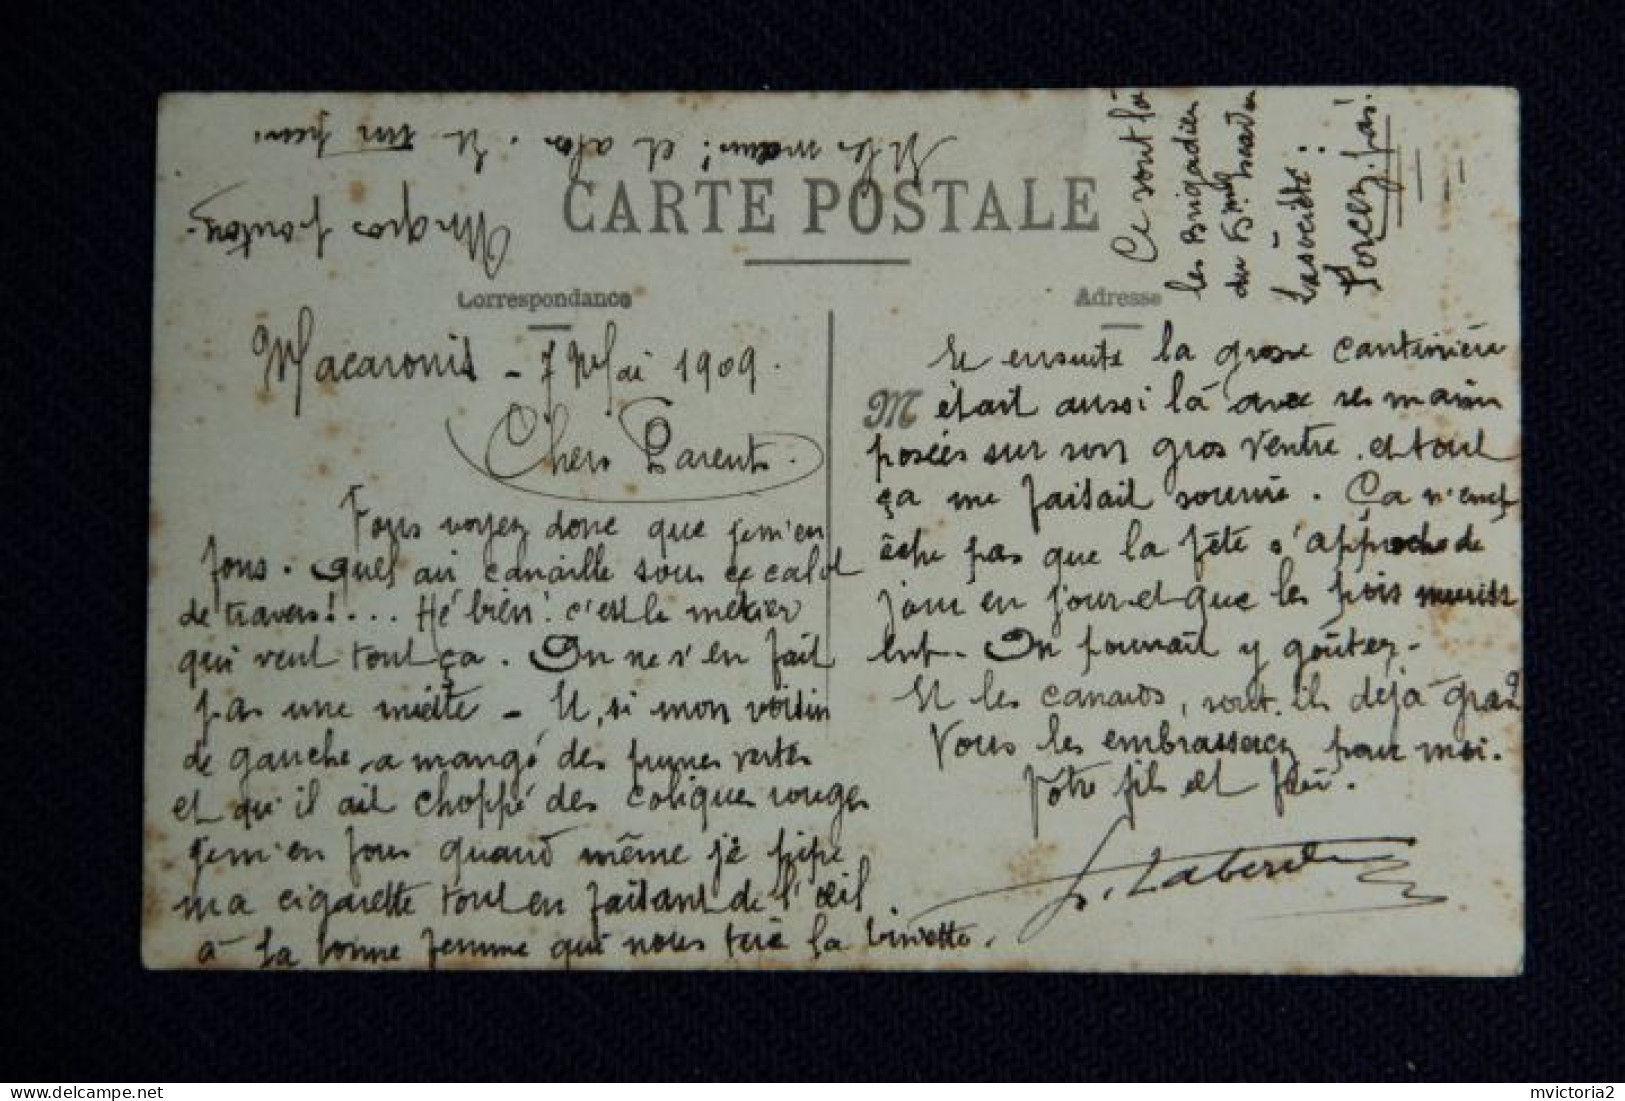 CARTE POSTALE
Correspondance
Adresse
Macaronis - 7 Mai 1909.
Chers Parents.
Vous voyez donc que j'em'en
fous. Quel air canaille sous ce calot
de travers!... Hé bien! c'est le métier
qui veut tout ça. On ne s'en fait
pas une miette - Et, si mon voisin
de gauche a mangé des prunes vertes
et qu'il ait choppé des coliques rouges
j'em'en fous quand même je pipe
ma cigarette tout en faisant de l'œil
à la bonne femme qui nous tire la binette.
Et ensuite la grosse cantinière
M était aussi là avec ses mains
posées sur son gros ventre. et tout
ça me faisait sourire. Ça n'emp
êche pas que la fête s'approche de
jour en jour et que les pois muriss
ent. On pourrait y goûter.
Et les canards, sont-ils déjà gras?
Vous les embrasserez pour moi.
Votre fils et frère.
Ce sont là
les Brigadiers
du 5me
La société:
Et les mains! et alors. Et un peu
Un gros
mvictoria2